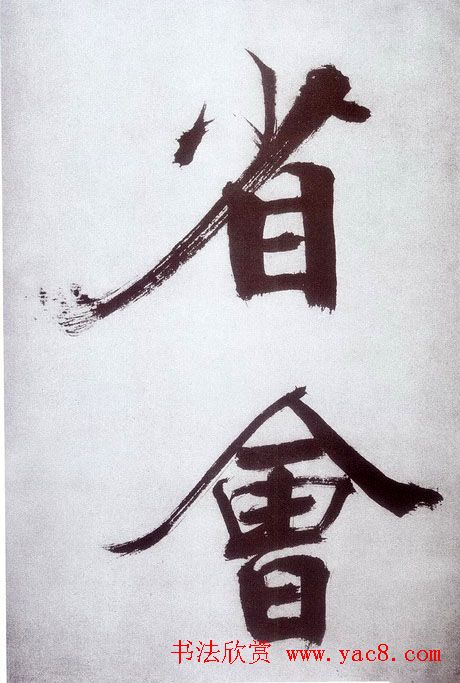 省
會
书法欣赏 www.yac8.com